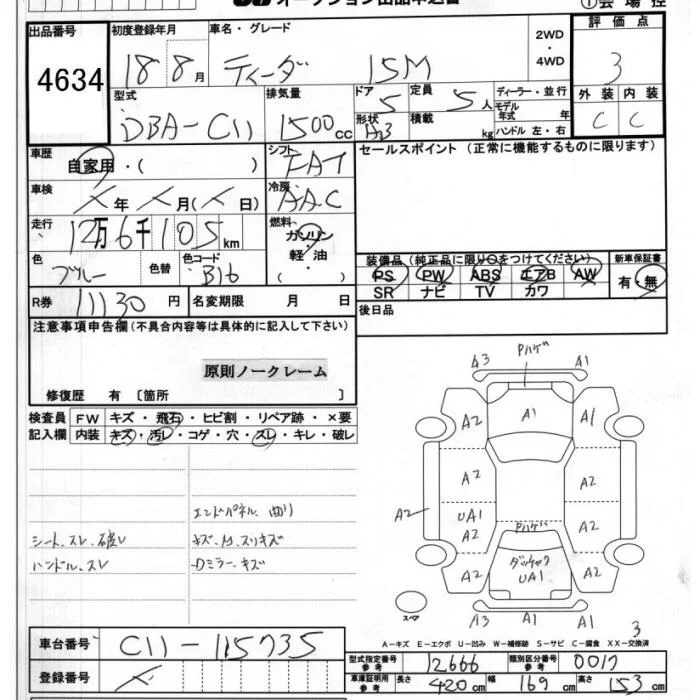 オークション出品申込書
①会場控
出品番号 初度登録年月 車名・グレード 2WD・4WD 評価点
4634 18 8月 ティーダ 15M 3
型式 排気量 ドア 定員 ディーラー・並行 外装 内装
DBA-C11 1500cc 5 5人 モデル年式 年 C C
形状 A3 積載 kg ハンドル 左・右
車歴 自家用・( ) シフト FAT セールスポイント (正常に機能するものに限ります)
車検 年 月( 日) 冷房 AAC
走行 12万6千105km 燃料 ガソリン 軽油 ( )
色 ブルー 色替 色コード B16
装備品 (純正品に限り○をつけてください) 新車保証書
PS PW ABS エアB AW 有・無
SR ナビ TV カワ
R券 11130円 名変期限 月 日 後日品
注意事項申告欄 (不具合内容等は具体的に記入して下さい)
原則ノークレーム
修復歴 有 [箇所 ]
検査員記入欄 FW キズ・飛石・ヒビ割・リペア跡・×要
内装 キズ・汚レ・コゲ・穴・スレ・キレ・破レ
エンドパネル 曲リ
シート、スレ、破レ キズ、凹、スリキズ
ハンドル、スレ Dミラー、キズ
A3 Pハゲ A1
A2 A1 A1
A2 A2
A2 UA1 A2 A2
Pハゲ
A2 UA1 A2
スペア A3 A1 A1
3
A-キズ E-エクボ U-凹み W-補修跡 S-サビ C-腐食 XX-交換済
車台番号 C11-115735
型式指定番号 参考 12666 類別区分番号 参考 0017
登録番号
車庫証明用 参考 長さ 420cm 幅 169cm 高さ 153cm